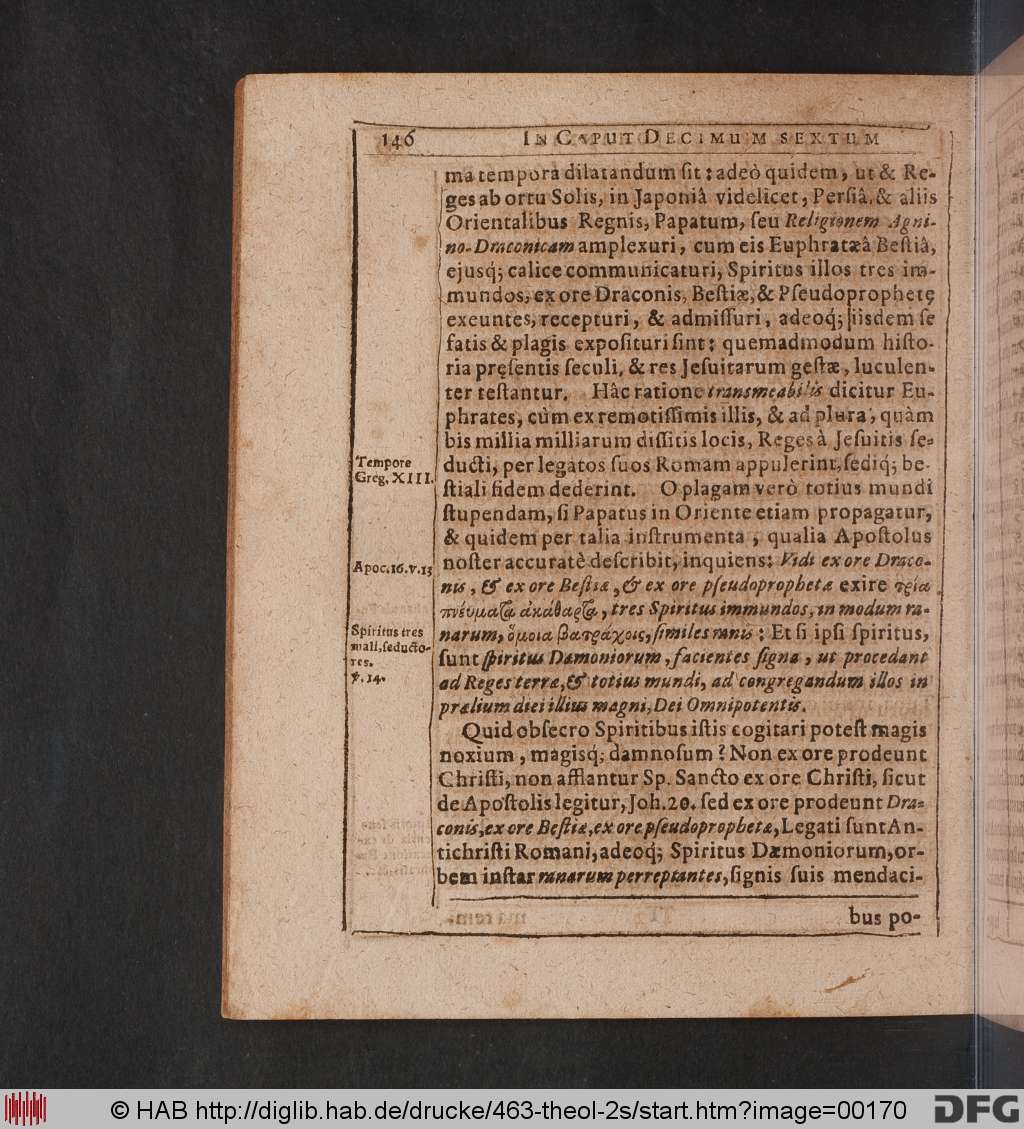 146 IN CAPUT DECIMUM SEXTUM
ma tempora dilatandum ſit: adeò quidem, ut & Re-
ges ab ortu Solis, in Japoniâ videlicet, Perſiâ, & aliis
Orientalibus Regnis, Papatum, ſeu Religionem Agni-
no-Draconicam amplexuri, cum eis Euphratæâ Beſtiâ,
ejusq́; calice communicaturi, Spiritus illos tres im-
mundos, ex ore Draconis, Beſtiæ, & Pſeudoprophetę
exeuntes, recepturi, & admiſſuri, adeoq́; iisdem ſe
fatis & plagis expoſituri ſint: quemadmodum hiſto-
ria pręſentis ſeculi, & res Jeſuitarum geſtæ, luculen-
ter teſtantur. Hâc ratione transmeabilis dicitur Eu-
phrates, cùm ex remotiſſimis illis, & ad plura, quàm
bis millia milliarum diſſitis locis, Reges à Jeſuitis ſe-
ducti, per legatos ſuos Romam appulerint, ſediq́; be-
ſtiali fidem dederint. O plagam verò totius mundi
ſtupendam, ſi Papatus in Oriente etiam propagatur,
& quidem per talia inſtrumenta, qualia Apoſtolus
noſter accuratè deſcribit, inquiens: Vidi ex ore Draco-
nis, & ex ore Beſtiæ, & ex ore pſeudoprophetæ exire τρία
πνέυματα ἀκάθαρτα, tres Spiritus immundos, in modum ra-
narum, ὅμοια βατράχοις, ſimiles ranis: Et ſi ipſi ſpiritus,
ſunt ſpiritus Dæmoniorum, facientes ſigna, ut procedant
ad Reges terræ, & totius mundi, ad congregandum illos in
prælium diei illius magni, Dei Omnipotentis.
Quid obſecro Spiritibus iſtis cogitari poteſt magis
noxium, magisq́; damnoſum? Non ex ore prodeunt
Chriſti, non afflantur Sp. Sancto ex ore Chriſti, ſicut
de Apoſtolis legitur, Joh. 20. ſed ex ore prodeunt Dra-
conis, ex ore Beſtiæ, ex ore pſeudoprophetæ, Legati ſunt An-
tichriſti Romani, adeoq́; Spiritus Dæmoniorum, or-
bem inſtar ranarum perreptantes, ſignis ſuis mendaci-
bus po-
Tempore
Greg. XIII.
Apoc. 16. v. 13
Spiritus tres
mali, ſeducto-
res.
℣. 14.
© HAB http://diglib.hab.de/drucke/463-theol-2s/start.htm?image=00170
DFG